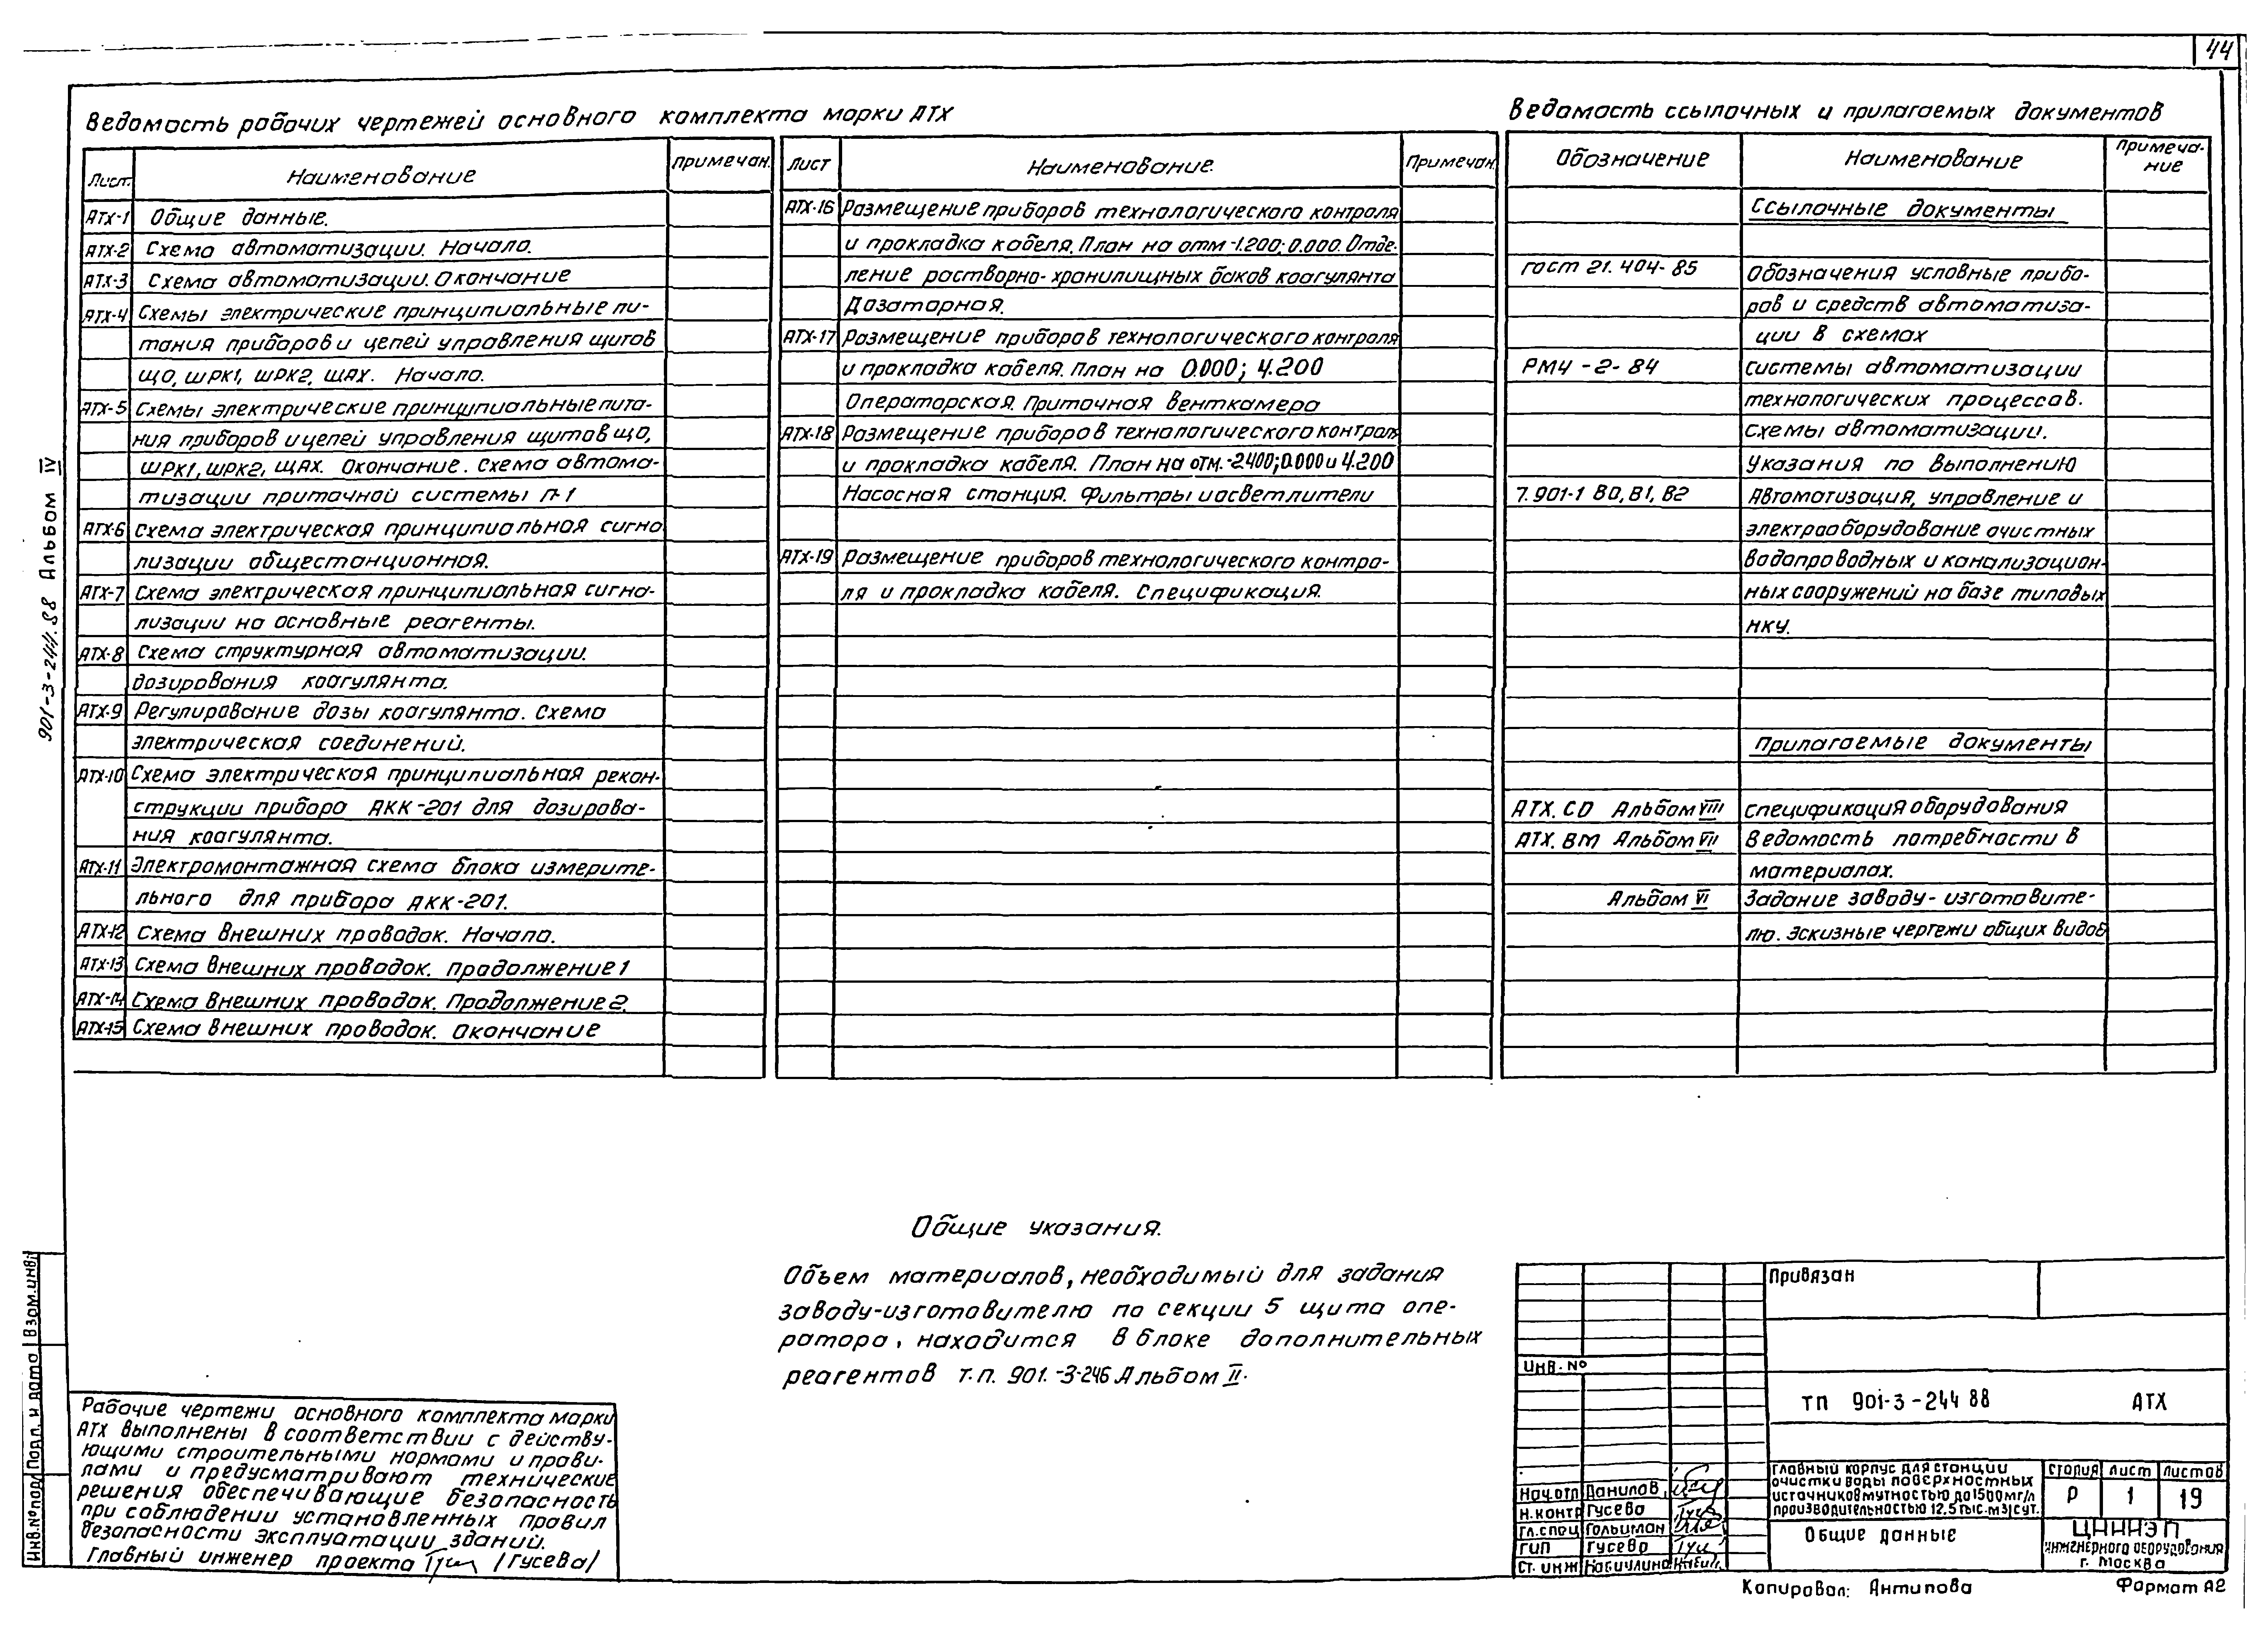 44
Ведомость рабочих чертежей основного комплекта марки АТХ
Лист. Наименование примечан.
АТХ-1 Общие данные.
АТХ-2 Схема автоматизации. Начало.
АТХ-3 Схема автоматизации. Окончание
АТХ-4 Схемы электрические принципиальные пи-
тания приборов и цепей управления щитов
ЩО, ШРК1, ШРК2, ЩАХ. Начало.
АТХ-5 Схемы электрические принципиальные пита-
ния приборов и цепей управления щитов ЩО,
ШРК1, ШРК2, ЩАХ. Окончание. Схема автома-
тизации приточной системы П-1
АТХ-6 Схема электрическая принципиальная сигна
лизации общестанционная.
АТХ-7 Схема электрическая принципиальная сигна-
лизации на основные реагенты.
АТХ-8 Схема структурная автоматизации.
дозирования коагулянта.
АТХ-9 Регулирование дозы коагулянта. Схема
электрическая соединений.
АТХ-10 Схема электрическая принципиальная рекон-
струкции прибора АКК-201 для дозирова-
ния коагулянта.
АТХ-11 Электромонтажная схема блока измерите-
льного для прибора АКК-201.
АТХ-12 Схема внешних проводок. Начало.
АТХ-13 Схема внешних проводок. Продолжение 1
АТХ-14 Схема внешних проводок. Продолжение 2.
АТХ-15 Схема внешних проводок. Окончание
Лист Наименование. Примечан.
АТХ-16 Размещение приборов технологического контроля
и прокладка кабеля. План на отм -1.200; 0.000. Отде-
ление растворно-хранилищных баков коагулянта
Дозаторная.
АТХ-17 Размещение приборов технологического контроля
и прокладка кабеля. План на 0.000; 4.200
Операторская. Приточная венткамера
АТХ-18 Размещение приборов технологического контроля
и прокладка кабеля. План на отм. -2.400; 0.000 и 4.200
Насосная станция. Фильтры и осветлители
АТХ-19 Размещение приборов технологического контро-
ля и прокладка кабеля. Спецификация.
Ведомость ссылочных и прилагаемых документов
Обозначение Наименование Примеча-
ние
Ссылочные документы
ГОСТ 21. 404-85 Обозначения условные прибо-
ров и средств автоматиза-
ции в схемах
РМ4-2-84 Системы автоматизации
технологических процессов.
Схемы автоматизации.
Указания по выполнению
7.901-1 В0, В1, В2 Автоматизация, управление и
электрооборудование очистных
водопроводных и канализацион-
ных сооружений на базе типовых
НКУ.
Прилагаемые документы
АТХ. СО Альбом VIII Спецификация оборудования
АТХ. ВМ Альбом VII Ведомость потребности в
материалах.
Альбом VI Задание заводу-изготовите-
лю. Эскизные чертежи общих видов
901-3-244.88 Альбом IV
Общие указания.
Объем материалов, необходимый для задания
заводу-изготовителю по секции 5 щита опе-
ратора, находится в блоке дополнительных
реагентов т.п. 901.-3-246 Альбом II.
Взам.инв.
Подп. и дата
Инв.№ подл
Рабочие чертежи основного комплекта марки
АТХ выполнены в соответствии с действу-
ющими строительными нормами и прави-
лами и предусматривают технические
решения обеспечивающие безопасность
при соблюдении установленных правил
безопасности эксплуатации зданий.
Главный инженер проекта /Гусева/
Привязан
Инв. №
ТП 901-3-244 88 АТХ
Нач.отд Данилов
Н.контр Гусева
Гл.спец Гольцман
ГИП Гусева
Ст. инж Набиулина
Главный корпус для станции
очистки воды поверхностных
источников мутностью до 1500 мг/л
производительностью 12.5 тыс. м3/сут.
Стадия Лист Листов
Р 1 19
Общие данные
ЦНИИЭП
инженерного оборудования
г. Москва
Копировал: Антипова Формат А2